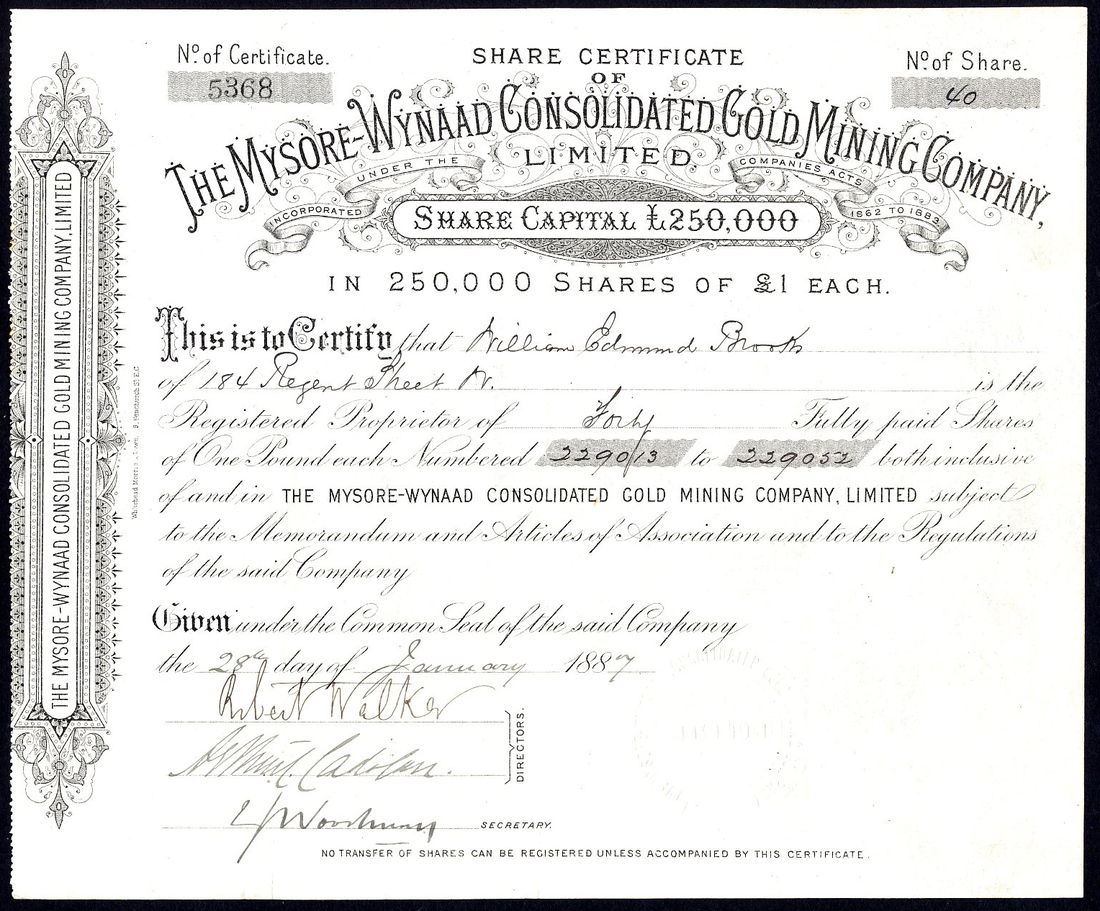 No. of Certificate.
5368
SHARE CERTIFICATE
OF
No. of Share.
40
THE MYSORE-WYNAAD CONSOLIDATED GOLD MINING COMPANY,
LIMITED.
INCORPORATED UNDER THE COMPANIES ACTS 1862 TO 1883
SHARE CAPITAL £250,000
IN 250,000 SHARES OF £1 EACH.
This is to Certify that William Edmund Brooks
of 184 Regent Street W. is the
Registered Proprietor of Forty Fully paid Shares
of One Pound each Numbered 229013 to 229052 both inclusive
of and in THE MYSORE-WYNAAD CONSOLIDATED GOLD MINING COMPANY, LIMITED subject
to the Memorandum and Articles of Association and to the Regulations
of the said Company
Given under the Common Seal of the said Company
the 28th day of January 1887
Robert Walker
DIRECTORS.
SECRETARY.
NO TRANSFER OF SHARES CAN BE REGISTERED UNLESS ACCOMPANIED BY THIS CERTIFICATE.
THE MYSORE-WYNAAD CONSOLIDATED GOLD MINING COMPANY, LIMITED